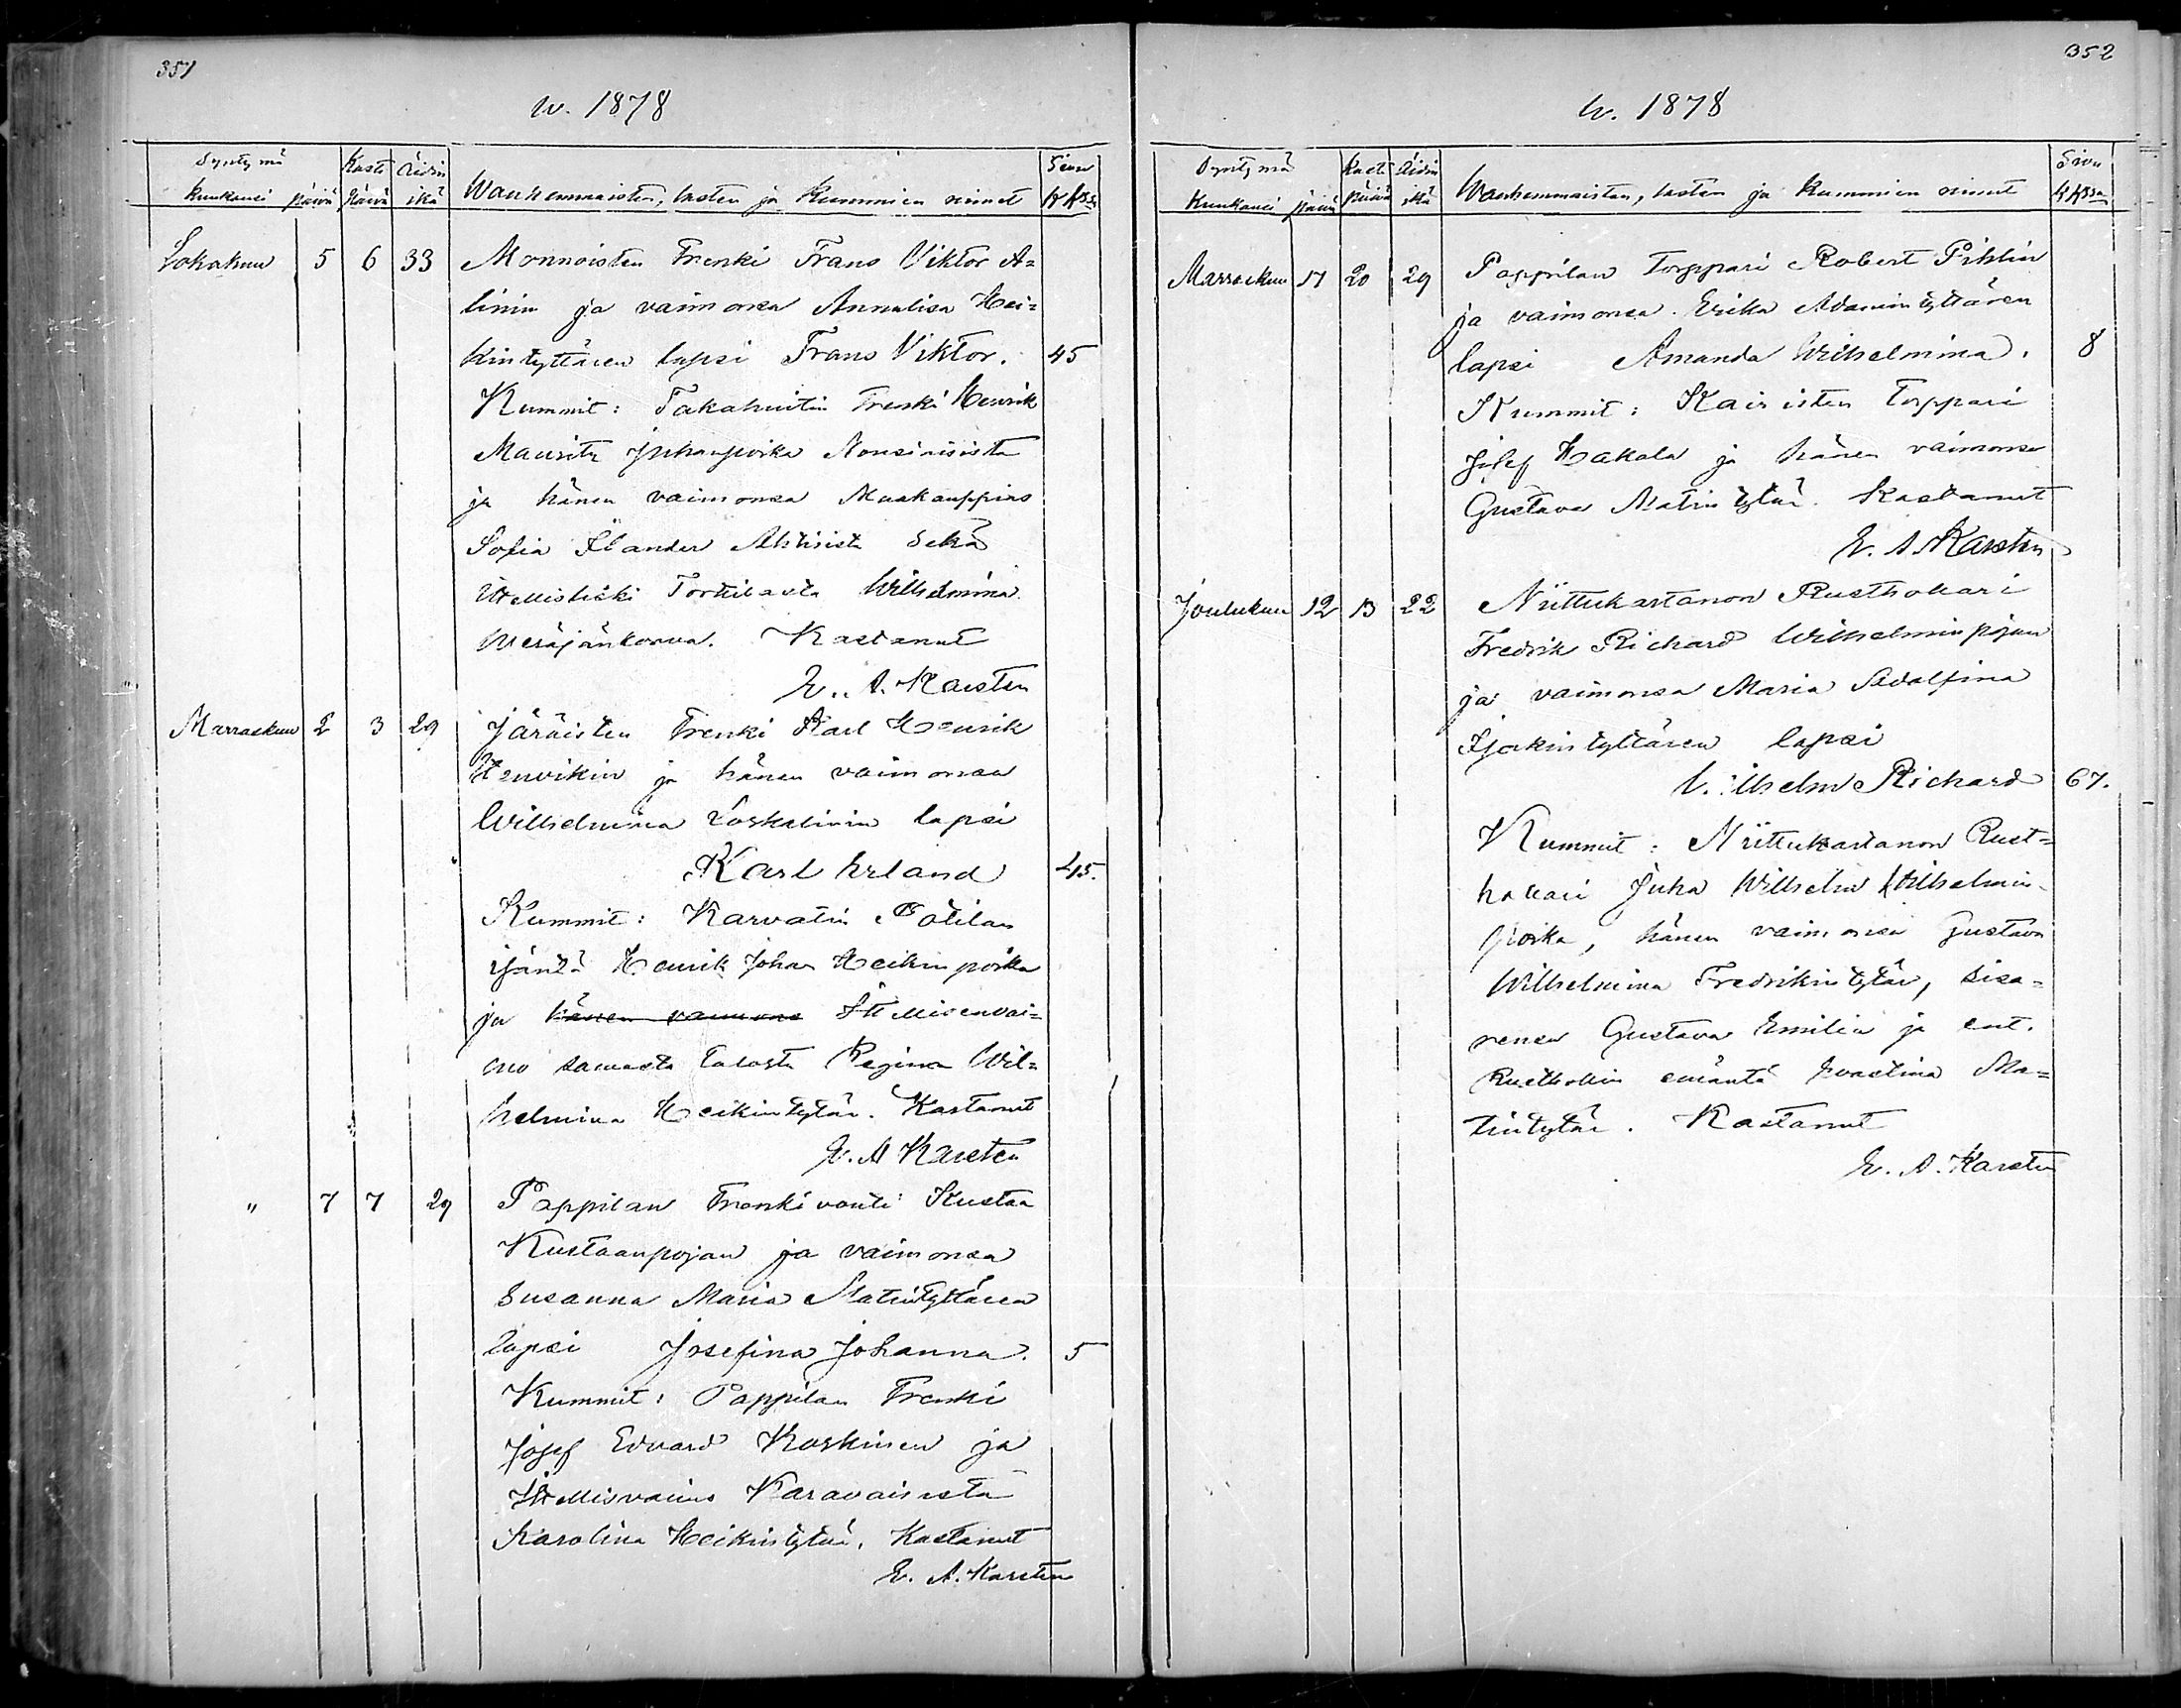 351
w. 1878
Syntymä Kaste Äidin Sivu
kuukausi päivä päivä ikä Wanhemmaisten, lasten ja Kummien nimet KKssa
Lokakuu 5 6 33 Monnoisten Trenki Frans Viktor A=
linin ja vaimonsa Annalisa Hei=
kintyttären lapsi Frans Viktor. 45
Kummit: Takahuitin Trenki Henrik
Mauritz Juhanpoika Nousiaisista
ja hänen vaimonsa Maakauppias
Sofia Ilander Ahtisista Sekä
Ittellisleski Torkilasta Wilhelmina
Meräjänkorva. Kastanut
E. A. Karsten
Marraskuu 2 3 29 Järäisten Trenki Karl Henrik
Henrikin ja hänen vaimonsa
Wilhelmina Koskelinin lapsi
Karl Erland 45.
Kummit: Karvatin Pötilan
isäntä Henrik Johan Heikinpoika
ja hänen vaimonsa Ittellisenvai=
mo samasta talosta Regina Wil=
helmina Heikintytär. Kastanut
E. A Karsten
" 7 7 29 Pappilan Trenkivouti Kustaa
Kustaanpojan ja vaimonsa
Susanna Maria Matintyttären
lapsi Josefina Johanna. 5
Kummit: Pappilan Trenki
Josef Edvard Koskinen ja
Ittellisvaimo Karavaisista
Karolina Heikintytär. Kastanut
E. A. Karsten
352
w. 1878
Syntymä Kaste Äidin Sivu
Kuukausi päivä päivä ikä Wanhemmaisten, lasten ja Kummien nimet KKssa
Marraskuu 17 20 29 Pappilan Torppari Robert Pihlin
ja vaimonsa Erika Adamintyttären
lapsi Amanda Wilhelmina. 8
Kummit: Kairisten Torppari
Josef Hakala ja hänen vaimonsa
Gustava Matintytär. Kastanut
E. A. Karsten
Joulukuu 12 13 22 Niittukartanon Rusthollari
Fredrik Richard Wilhelminpojan
ja vaimonsa Maria Adolfina
Isakintyttären lapsi
Wilhelm Richard 67.
Kummit: Niittukartanon Rust=
hollari Juha Wilhelm Wilhelmin-
poika, hänen vaimonsa Gustava
Wilhelmina Fredrikintytär, sisa=
rensa Gustava Emilia ja ent.
Rusthollin emäntä Justina Ma=
tintytär. Kastanut
E. A. Karsten